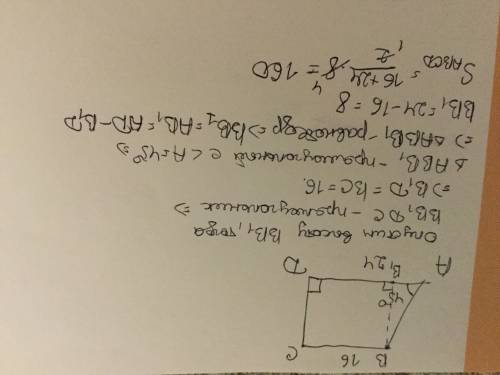 C
B
16
45°
D
B₁
24
A
Опустим высоту BB₁, тогда
BB₁DC - прямоугольник ⇒
⇒ B₁D = BC = 16.
△ ABB₁ - прямоугольный с ∠A = 45° ⇒
⇒ △ABB₁ - равнобедр ⇒ BB₁ = AB₁ = AD - B₁D
BB₁ = 24 - 16 = 8
S ABCD = 16+24 / 2 · 8 = 160
4
1